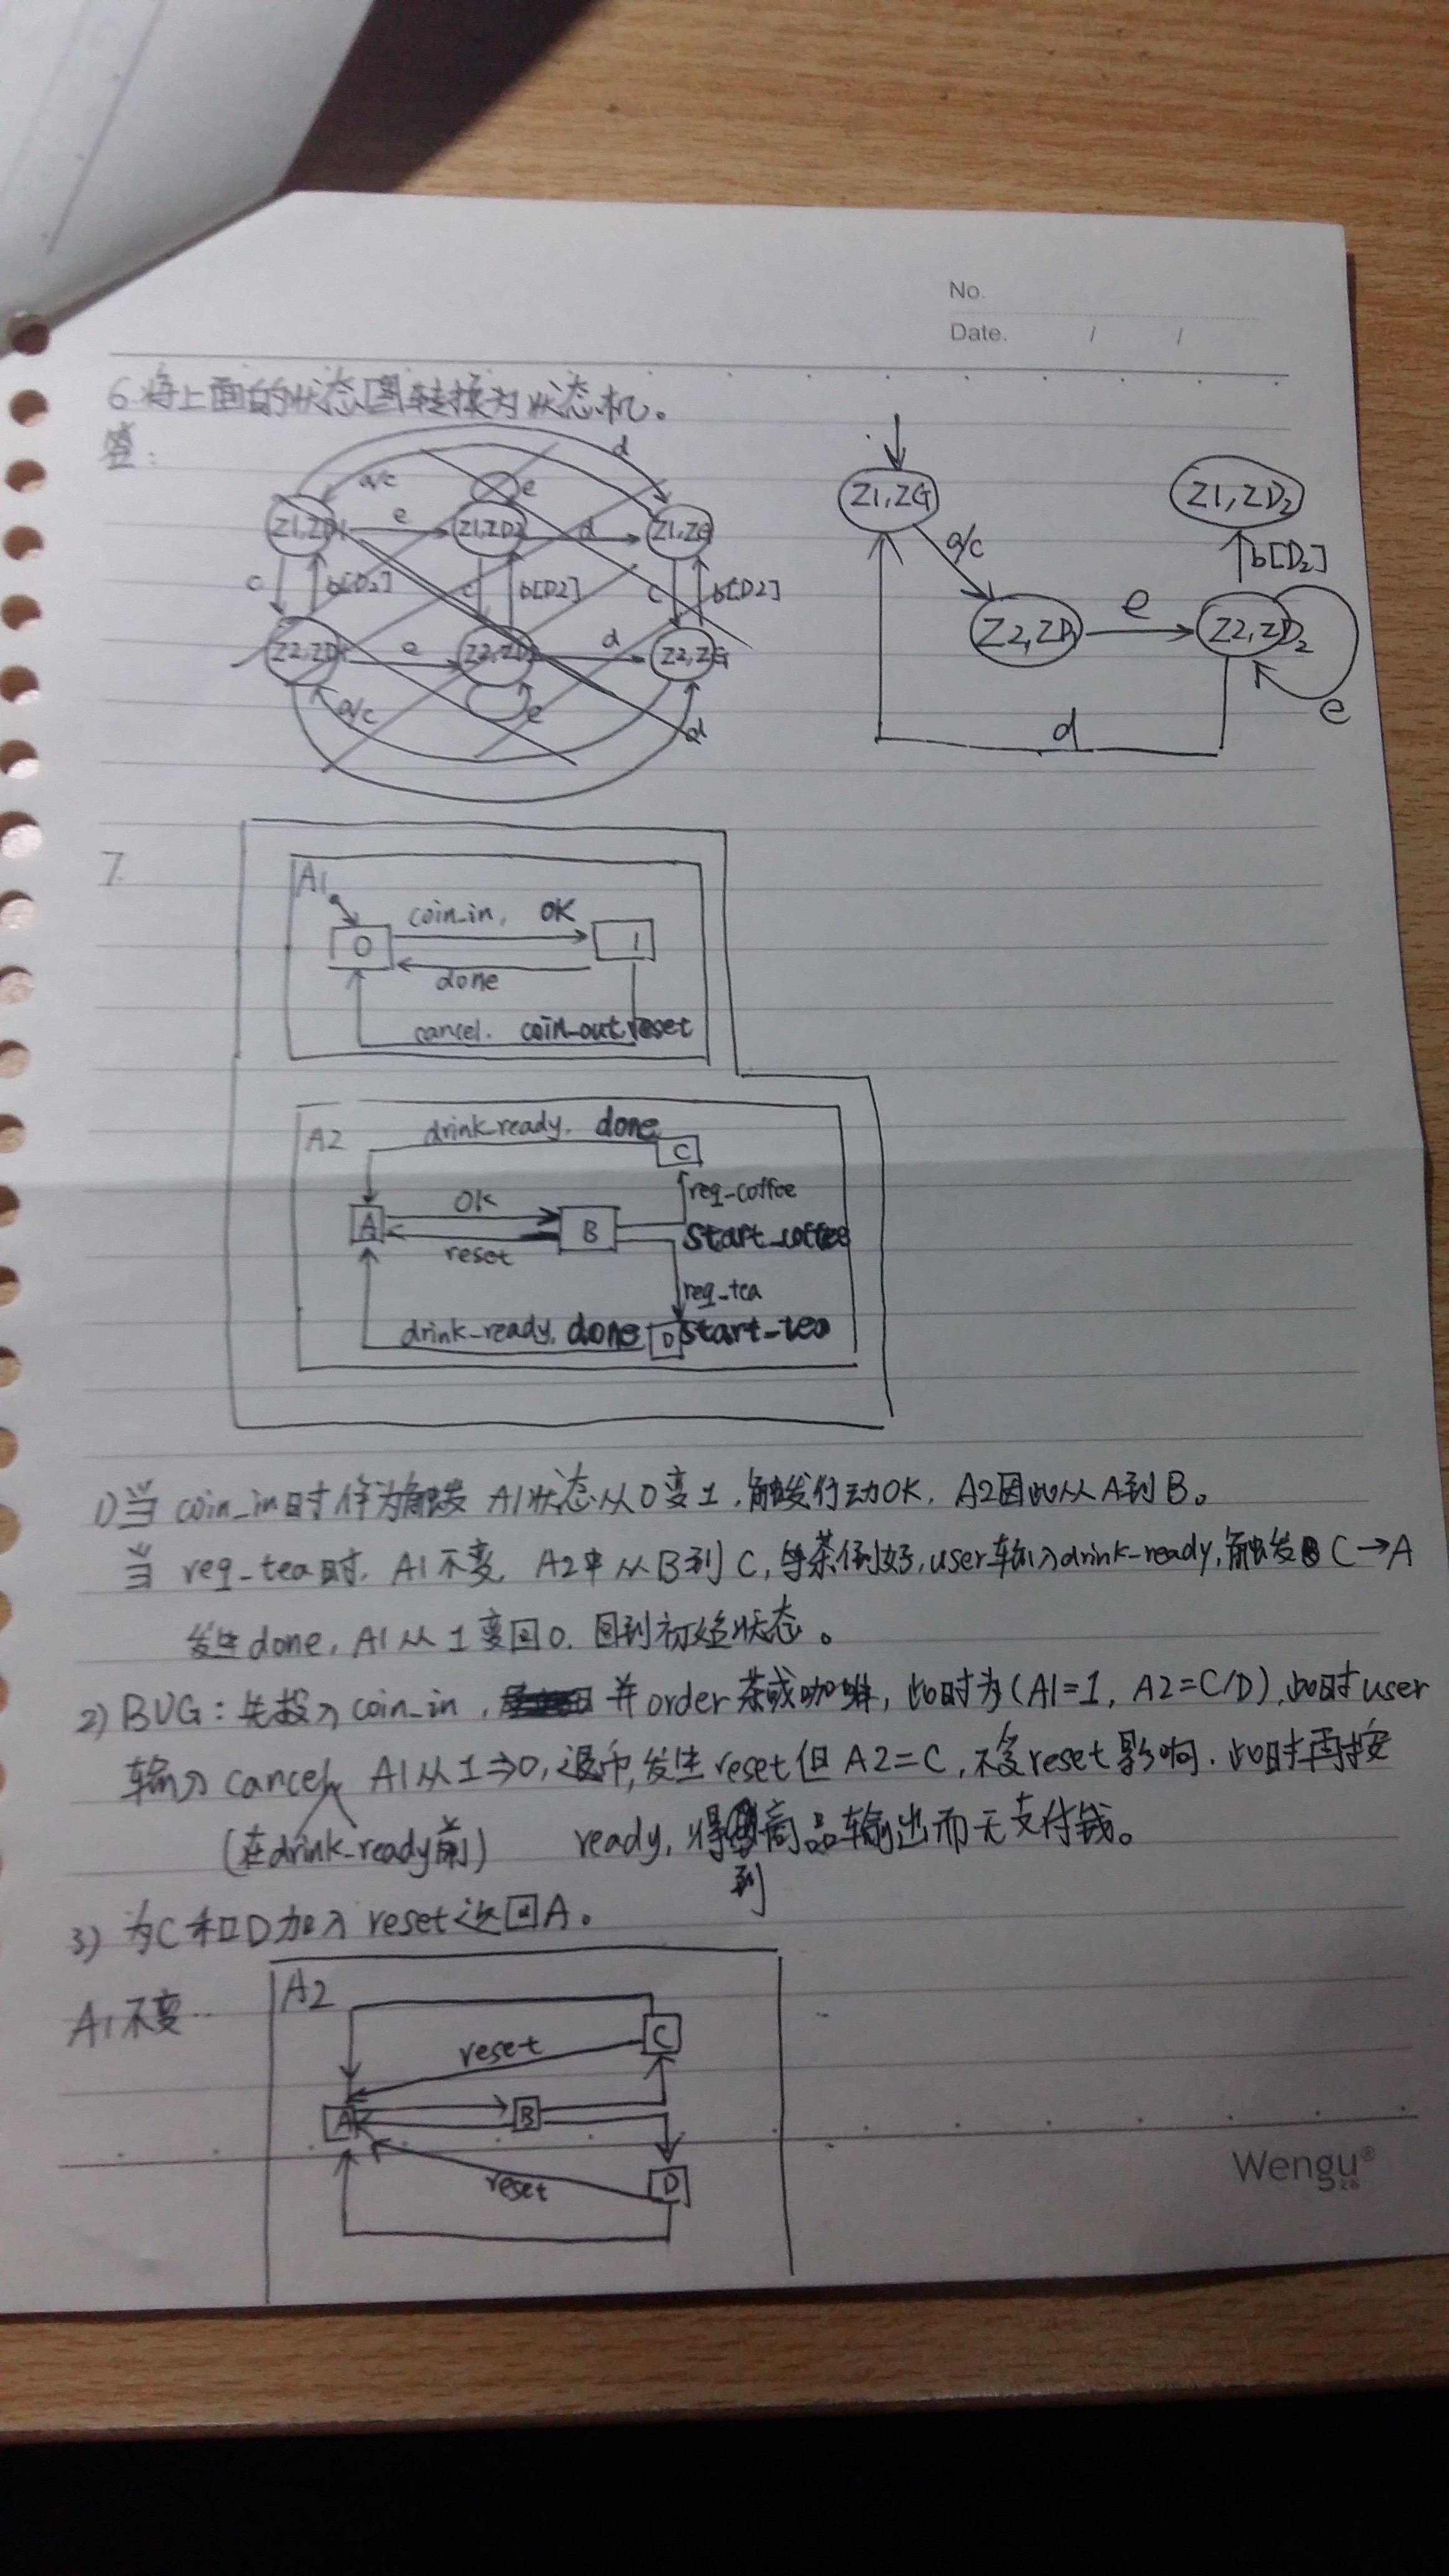 No.
Date. / /
6.将上面的状态图转换为状态机。
答:
d
a/c
e
Z1,ZD1
e
Z1,ZD2
d
Z1,ZG
c
b[D2]
c
b[D2]
c
b[D2]
Z2,ZD1
e
Z2,ZD2
d
Z2,ZG
a/c
e
d
Z1,ZG
Z1,ZD2
a/c
b[D2]
Z2,ZD1
e
Z2,ZD2
e
d
7.
A1
coin_in, OK
0
1
done
cancel. coin_out, reset
A2
drink_ready. done
C
req_coffee
OK
A
B
start_coffee
reset
req_tea
drink_ready, done
D
start_tea
1)当 coin_in时作为触发 A1状态从0变1,触发行动OK, A2因此从A到B。
当 req_tea时, A1不变, A2中从B到C,等茶倒好,user输入drink_ready,触发 C→A
发生done, A1从1变回0. 回到初始状态。
2) BUG:先投入 coin_in, 并order茶或咖啡,此时为(A1=1, A2=C/D),此时user
输入 cancel, A1从1→0,退币,发生reset但A2=C,不受reset影响. 此时再按
(在drink_ready前) ready, 得到商品输出而无支付钱。
3) 为C和D加入 reset返回A。
A1不变..
A2
C
reset
A
B
reset
D
Wengu®